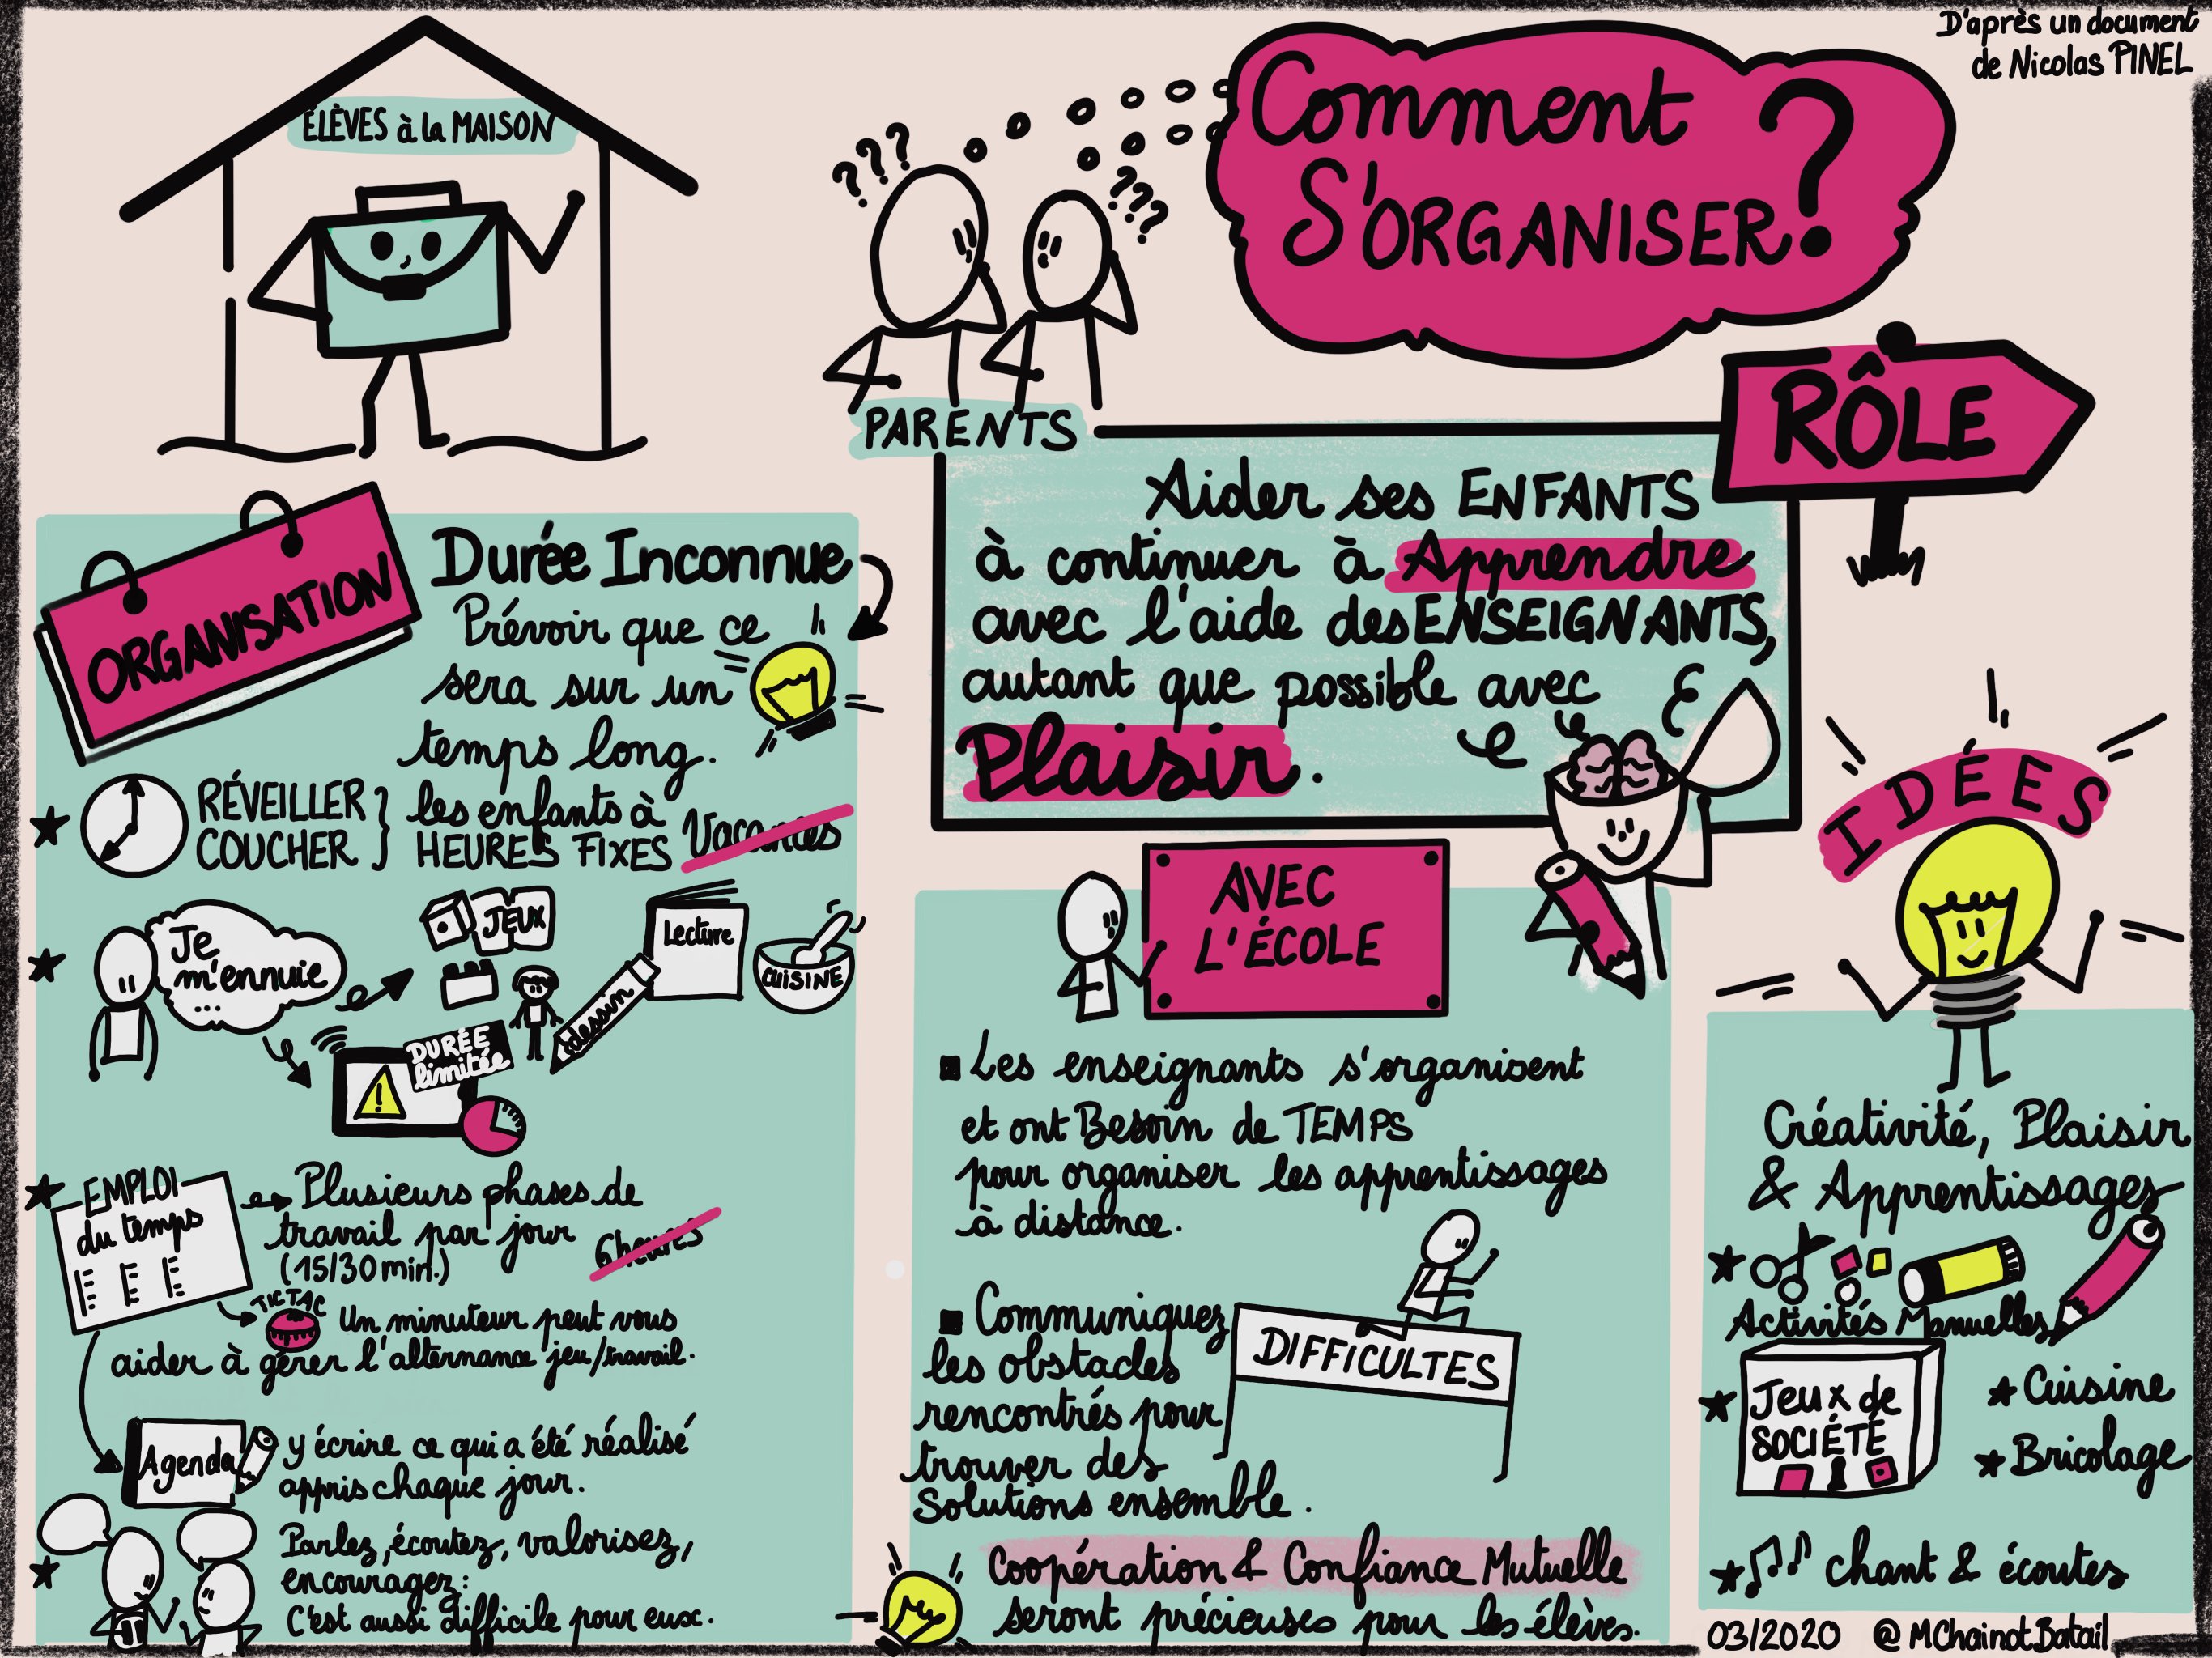 D'après un document
de Nicolas PINEL
ÉLÈVES à la MAISON
???
???
Comment
S'ORGANISER?
PARENTS
RÔLE
Aider ses ENFANTS
à continuer à Apprendre
avec l'aide des ENSEIGNANTS,
autant que possible avec
Plaisir.
ORGANISATION
Durée Inconnue
Prévoir que ce
sera sur un
temps long.
RÉVEILLER
COUCHER }
les enfants à
HEURES FIXES
Vacances
Je
m'ennuie
...
JEUX
Lecture
CUISINE
dessin
DURÉE
limitée
!
EMPLOI
du temps
Plusieurs phases de
travail par jour
(15/30 min.)
6 heures
TIC TAC
Un minuteur peut vous
aider à gérer l'alternance jeu/travail.
Agenda
y écrire ce qui a été réalisé
appris chaque jour.
Parlez, écoutez, valorisez,
encouragez:
C'est aussi difficile pour eux.
AVEC
L'ÉCOLE
Les enseignants s'organisent
et ont Besoin de TEMPS
pour organiser les apprentissages
à distance.
Communiquez
les obstacles
rencontrés pour
trouver des
Solutions ensemble.
DIFFICULTES
Coopération & Confiance Mutuelle
seront précieuses pour les élèves.
IDÉES
Créativité, Plaisir
& Apprentissages
Activités Manuelles
Jeux de
SOCIÉTÉ
Cuisine
Bricolage
chant & écoutes
03/2020 @MChainotBatail